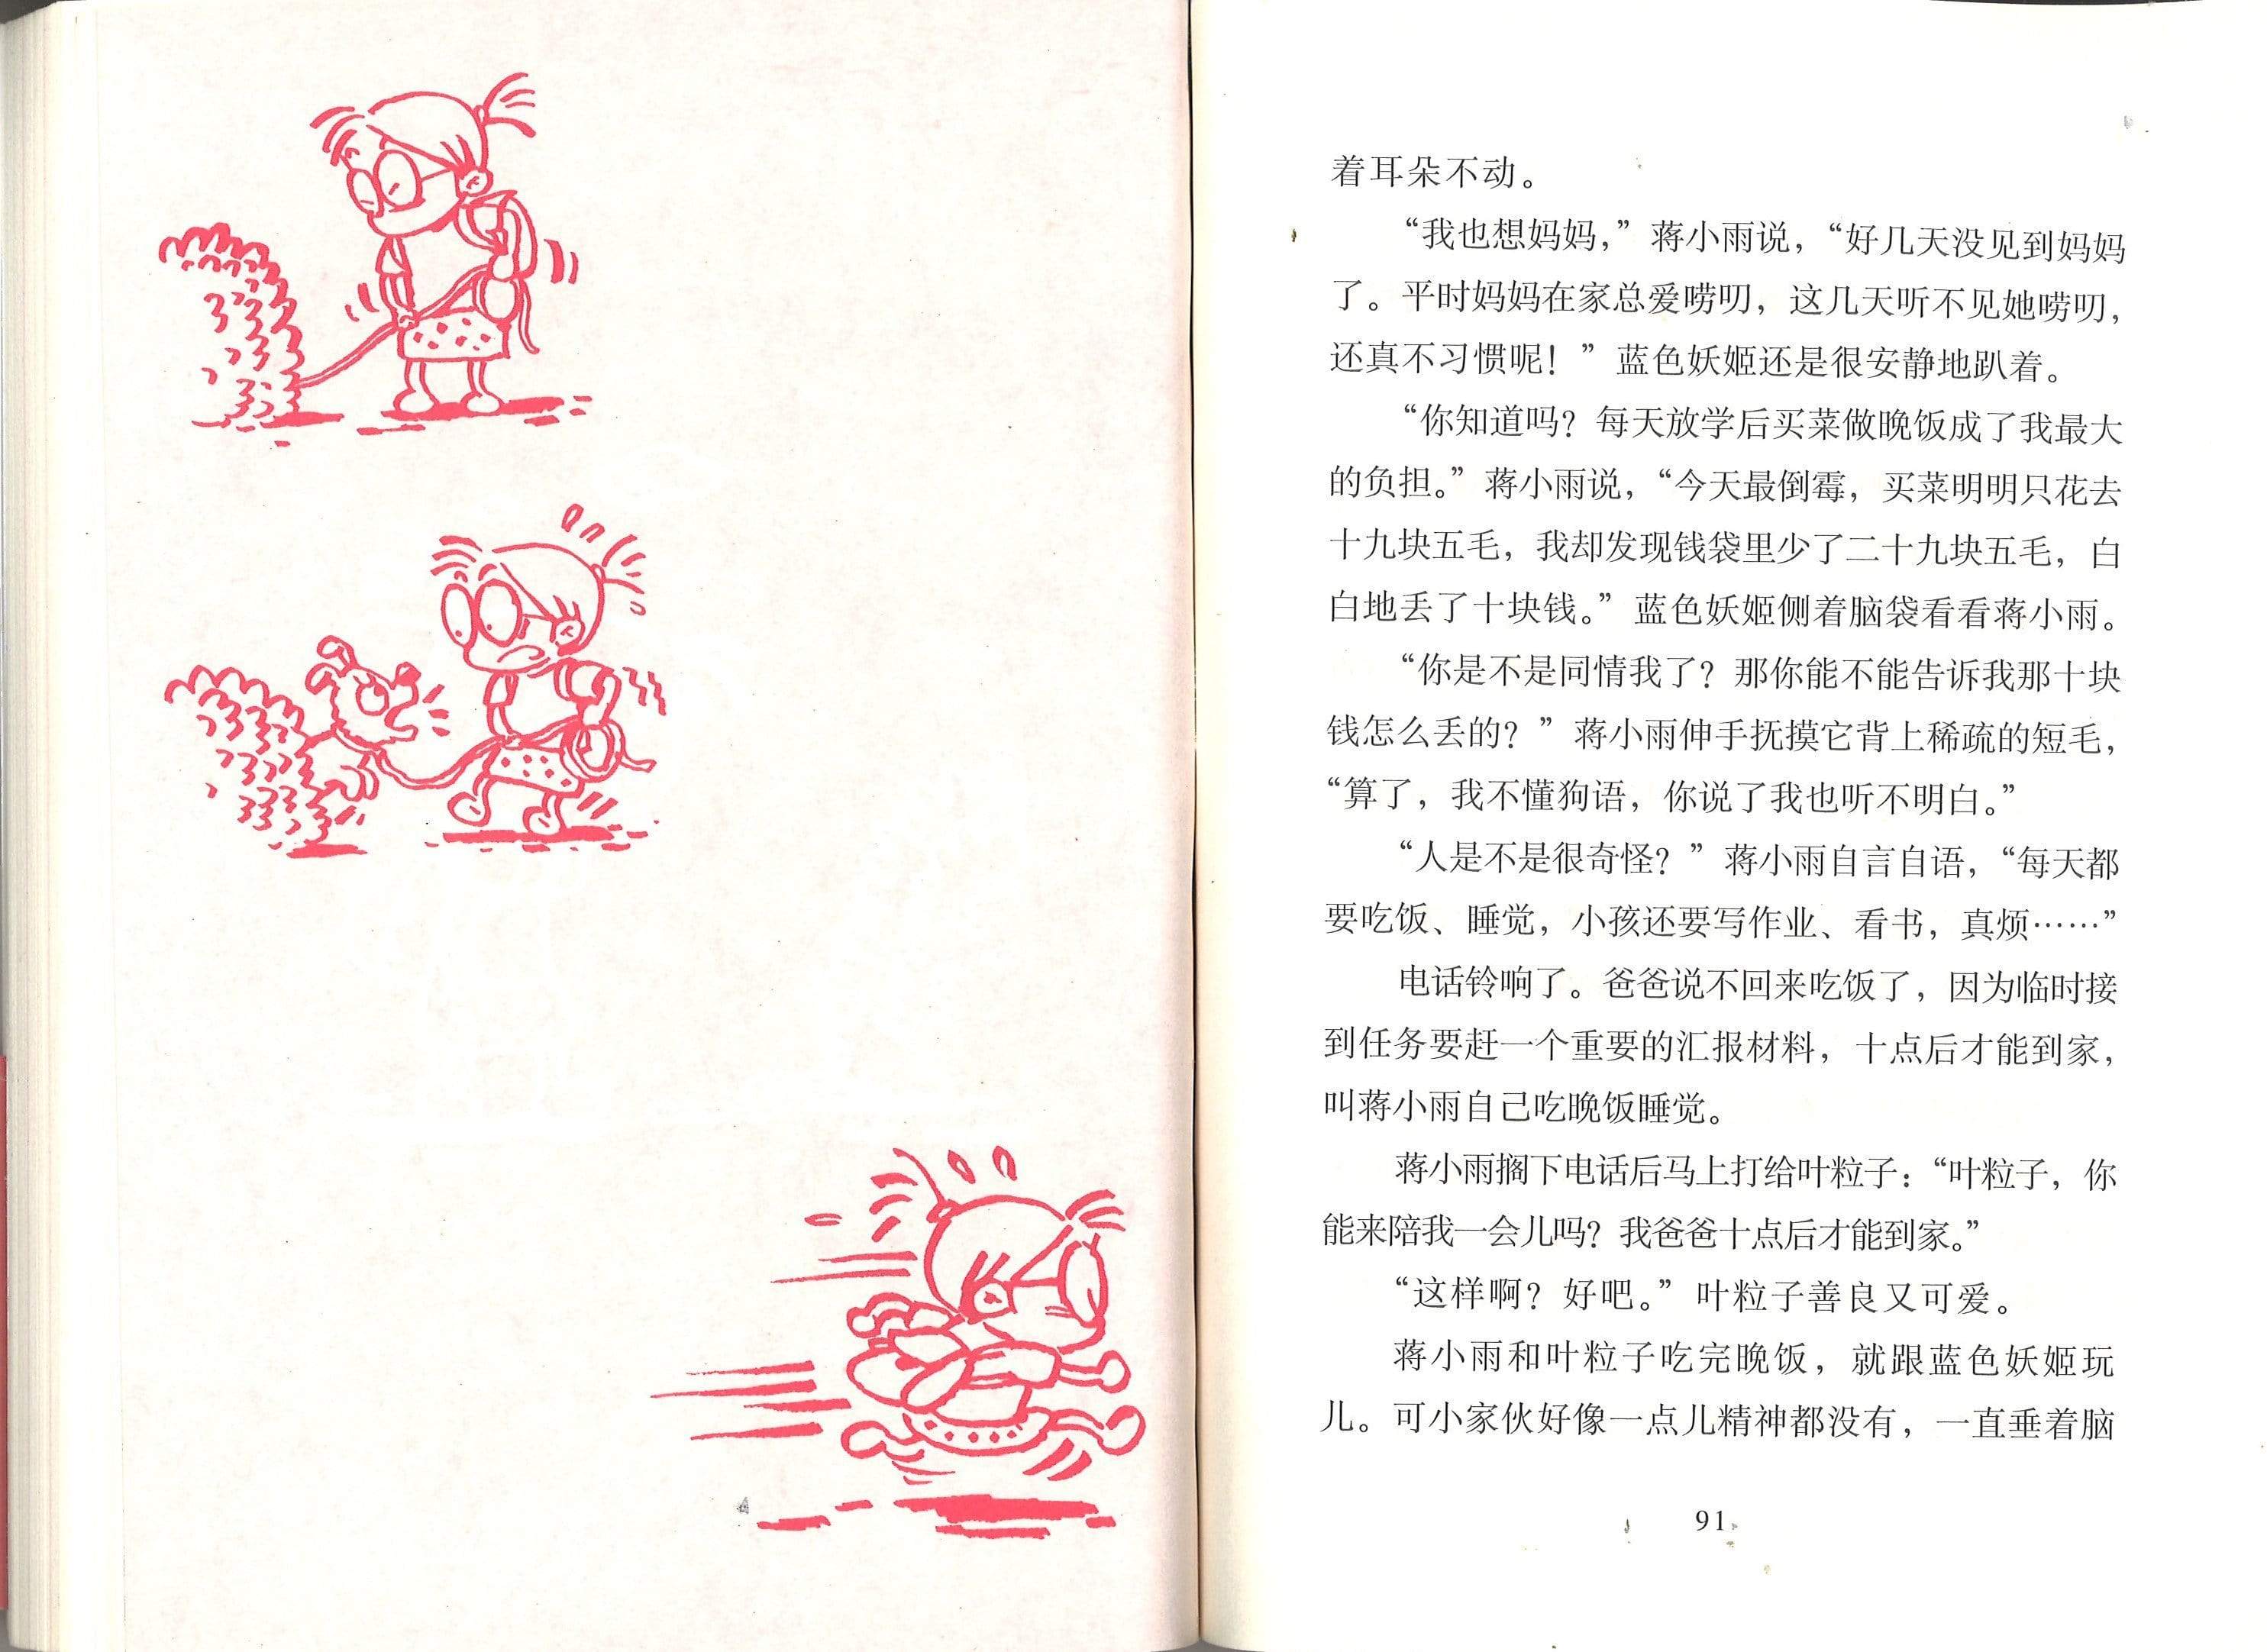 着耳朵不动。
“我也想妈妈，”蒋小雨说，“好几天没见到妈妈
了。平时妈妈在家总爱唠叨，这几天听不见她唠叨，
还真不习惯呢！”蓝色妖姬还是很安静地趴着。
“你知道吗？每天放学后买菜做晚饭成了我最大
的负担。”蒋小雨说，“今天最倒霉，买菜明明只花去
十九块五毛，我却发现钱袋里少了二十九块五毛，白
白地丢了十块钱。”蓝色妖姬侧着脑袋看看蒋小雨。
“你是不是同情我了？那你能不能告诉我那十块
钱怎么丢的？”蒋小雨伸手抚摸它背上稀疏的短毛，
“算了，我不懂狗语，你说了我也听不明白。”
“人是不是很奇怪？”蒋小雨自言自语，“每天都
要吃饭、睡觉，小孩还要写作业、看书，真烦……”
电话铃响了。爸爸说不回来吃饭了，因为临时接
到任务要赶一个重要的汇报材料，十点后才能到家，
叫蒋小雨自己吃晚饭睡觉。
蒋小雨搁下电话后马上打给叶粒子：“叶粒子，你
能来陪我一会儿吗？我爸爸十点后才能到家。”
“这样啊？好吧。”叶粒子善良又可爱。
蒋小雨和叶粒子吃完晚饭，就跟蓝色妖姬玩
儿。可小家伙好像一点儿精神都没有，一直垂着脑
91